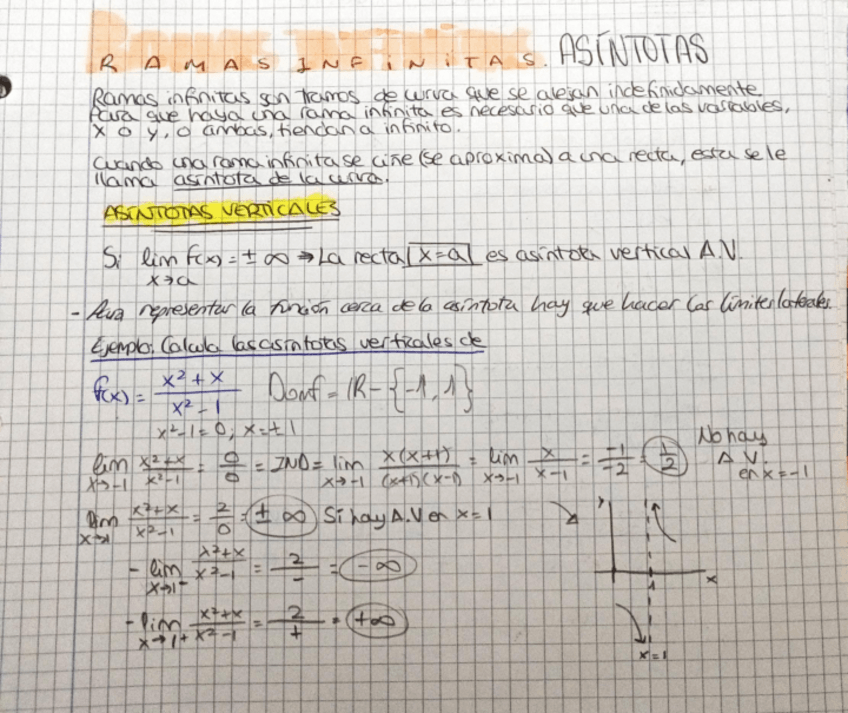 RAMAS INFINITAS. ASÍNTOTAS
Ramas infinitas son tramos de curva que se alejan indefinidamente.
Para que haya una rama infinita es necesario que una de las variables,
x o y, o ambas, tiendan a infinito.
Cuando una rama infinita se ciñe (se aproxima) a una recta, esta se le
llama asíntota de la curva.
ASÍNTOTAS VERTICALES
Si lim f(x) = ± ∞ ⇒ La recta x=a es asíntota vertical A.V.
x→a
- Para representar la función cerca de la asíntota hay que hacer los límites laterales
Ejemplo: Calcula las asíntotas verticales de
f(x) = (x²+x)/(x²-1) Domf = ℝ - {-1, 1}
x²-1=0; x=±1
lim x→-1 (x²+x)/(x²-1) = 0/0 = IND = lim x→-1 x(x+1)/((x+1)(x-1)) = lim x→-1 x/(x-1) = -1/-2 = 1/2 No hay A.V. en x=-1
lim x→1 (x²+x)/(x²-1) = 2/0 = ± ∞ Si hay A.V en x=1
- lim x→1⁻ (x²+x)/(x²-1) = 2/- = -∞
- lim x→1+ (x²+x)/(x²-1) = 2/+ = +∞
y
x
x=1